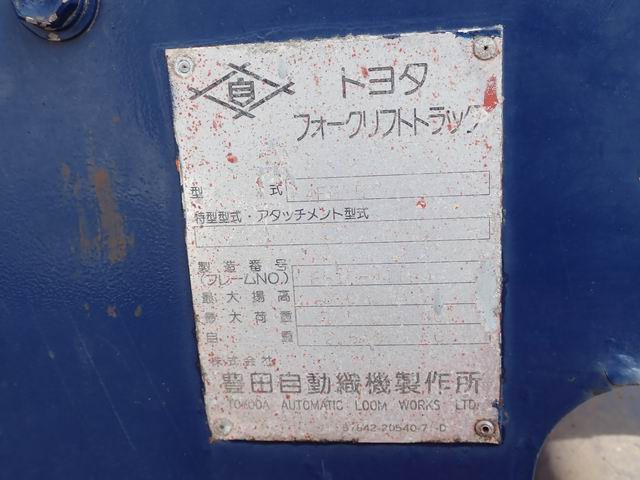 自
トヨタ
フォークリフトトラック
型 式
特型型式・アタッチメント型式
製造番号
(フレームNO.)
最大揚高
最大荷重
自 重
株式会社
豊田自動織機製作所
TOYODA AUTOMATIC LOOM WORKS LTD.
57642-20540-71